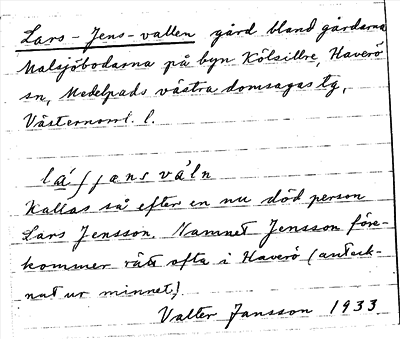 Lars-Jens-vallen gård bland gårdarna
Malsjöbodarna på byn Kölsillre, Haverö
sn, Medelpads västra domsagas tg,
Västernorrl. l.
kallas så efter en nu död person
Lars Jensson. Namnet Jensson före-
kommer rätt ofta i Haverö (anteck-
nat ur minnet)
Valter Jansson 1933